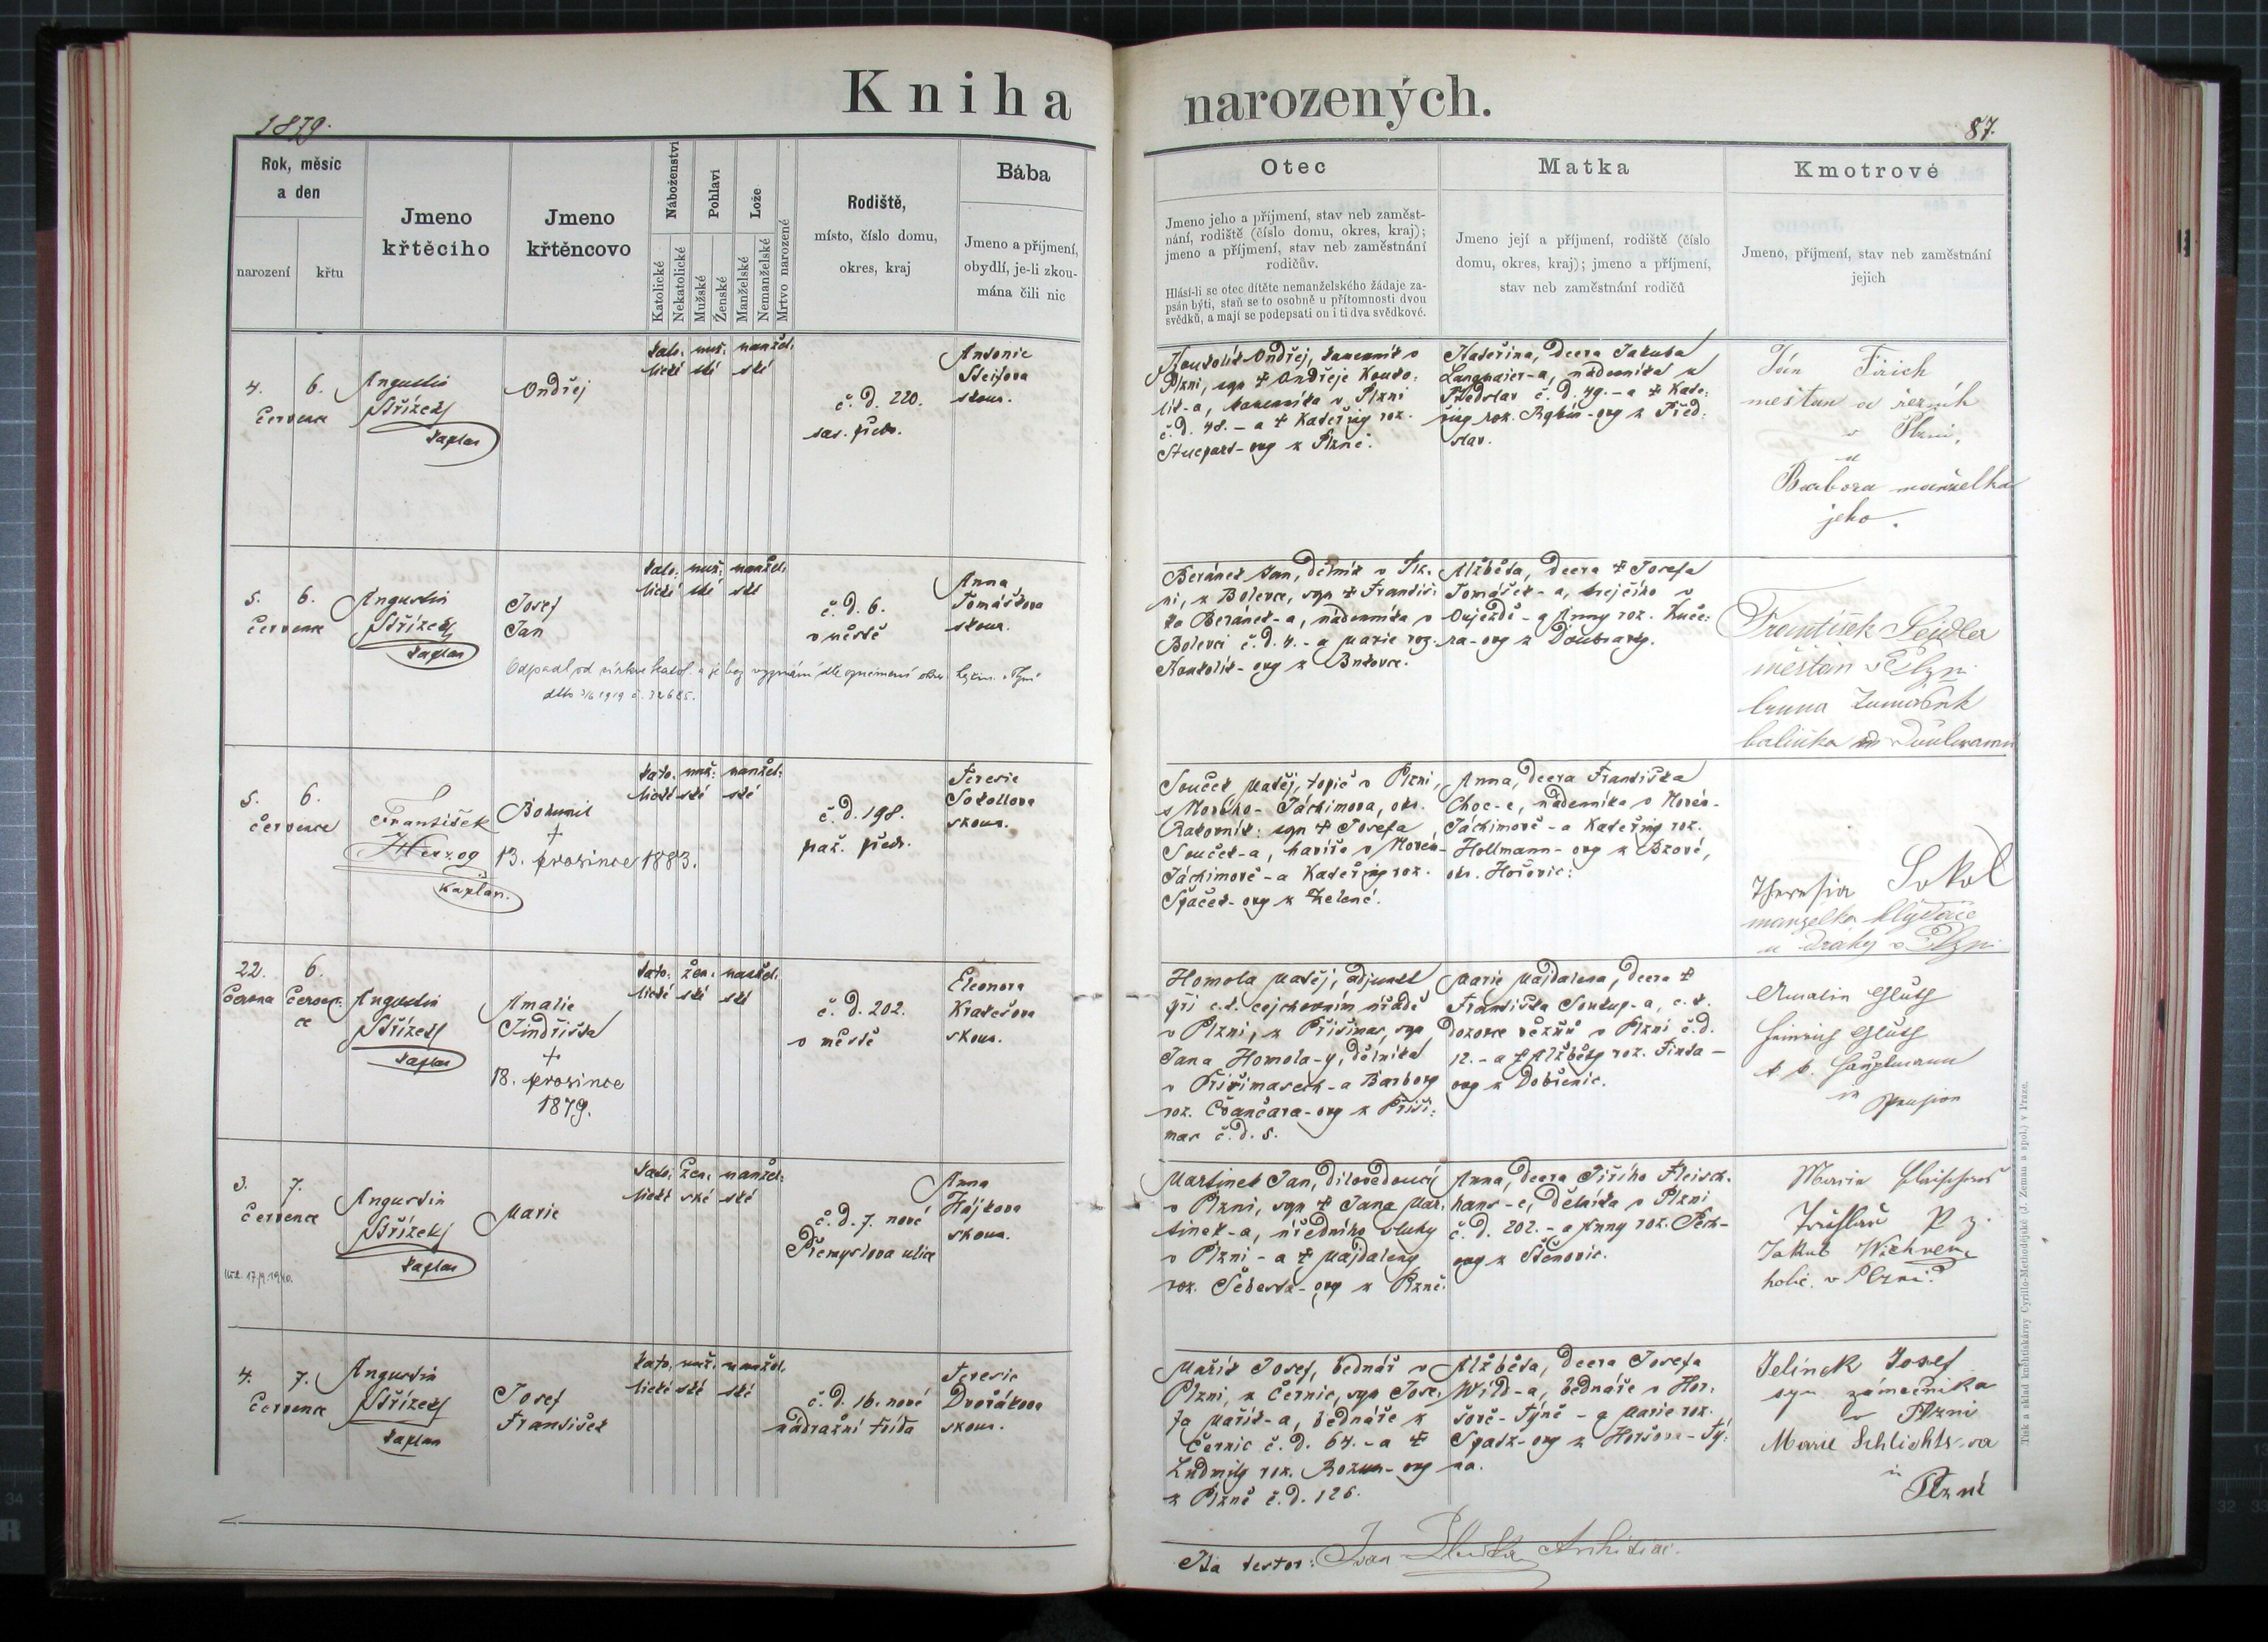 Kniha narozených.
1879.
87.
Rok, měsíc
a den
narození
křtu
Jmeno
křtěcího
Jmeno
křtěncovo
Náboženství
Katolické
Nekatolické
Pohlaví
Mužské
Ženské
Lože
Manželské
Nemanželské
Mrtvo narozené
Rodiště,
místo, číslo domu,
okres, kraj
Bába
Jmeno a příjmení,
obydlí, je-li zkou-
mána čili nic
Otec
Jmeno jeho a příjmení, stav neb zaměst-
nání, rodiště (číslo domu, okres, kraj);
jmeno a příjmení, stav neb zaměstnání
rodičův.
Hlásí-li se otec dítěte nemanželského žádaje za-
psán býti, staň se to osobně u přítomnosti dvou
svědků, a mají se podepsati on i ti dva svědkové.
Matka
Jmeno její a příjmení, rodiště (číslo
domu, okres, kraj); jmeno a příjmení,
stav neb zaměstnání rodičů
Kmotrové
Jmeno, příjmení, stav neb zaměstnání
jejich
4. 6.
července
Augustin
Střízek
kaplan
Ondřej
kato: muž: manžel:
lické ské ské
č. d. 220.
sas. předm.
Antonie
zkouš.
Koukolík Ondřej, kameník v
Plzni, syn † Ondřeje Kouko:
lík-a, kameníka v Plzni
č. d. 48. – a † Kateřiny roz.
z Plzně.
Kateřina, dcera Jakuba
Langmaier-a, nádeníka z
č. d. 49. – a † Kate:
řiny roz.
slav.
měštan a řezník
v Plzni,
a
Barbora manželka
jeho.
5. 6.
července
Augustin
Střízek
kaplan
Josef
Jan
kato: muž: manžel:
lické ské ské
č. d. 6.
v městě
Anna
Tomášková
zkouš.
Odpadl od církve katol. a je bez vyznání dle oznámení okres. hejtm. v Plzni
ddto 3/6 1919 č. 32685.
Beránek Jan, dělník v Plz:
ni, z Bolevce, syn † Františ:
ka Beránek-a, nádeníka v
Bolevci č. d. 4. – a Marie roz.
Koukolík-ovy z
Alžběta, dcera † Josefa
Tomášek-a, krejčího v
Oujezdě – a Anny roz. Kuče:
ra-ovy z Doubravy.
František Sejdler
měštan v Plzni
5. 6.
července
František
Herzog
kaplan.
Bohumil
†
13. prosince 1883.
kato: muž: manžel:
lické ské ské
č. d. 198.
praž. předm.
Teresie
Sokollova
zkouš.
Souček Matěj, topič v Plzni,
z Nového-Jáchimova, okr.
Rakovník: syn † Josefa
Souček-a, havíře v Novém-
Jáchimově – a Kateřiny roz.
Spaček-ovy z Zelené.
Anna, dcera Františka
Choc-e, nádeníka v Novém-
Jáchimově – a Kateřiny roz.
Hollmann-ovy z Bzové,
okr. Hořovic:
Theresia Sokol
manželka
u dráhy v Plzni
22. 6.
června červen:
ce
Augustin
Střízek
kaplan
Amalie
Jindřiška
†
18. prosince
1879.
kato: žen: manžel:
lické ské ské
č. d. 202.
v městě
Eleonora
zkouš.
Homola Matěj, adjunkt
při c. k. cejchovním úřadě
v Plzni, z Příšimas, syn
Jana Homola-y, dělníka
v Příšimasech – a Barbory
roz. Čvančara-ovy z Příši:
mas č. d. 5.
Marie Majdalena, dcera †
Františka Soukup-a, c. k.
dozorce vězňů v Plzni č. d.
12. – a † Alžběty roz.
ovy z Dobřenic.
Amalia Gluth
Heinrich Gluth
k. k. Hauptmann
in Pension
3. 7.
července
Augustin
Střízek
kaplan
Marie
kato: žen: manžel:
lické ské ské
č. d. 7. nové
Přemyslova ulice
Anna
Hájkova
zkouš.
Martinek Jan, dílovedoucí
v Plzni, syn † Jana Mar:
tinek-a, úředního sluhy
v Plzni – a † Majdaleny
roz. z Plzně.
Anna, dcera Jiřího Fleisch:
hans-e, dělníka v Plzni
č. d. 202. – a Anny roz.
ovy z Štěnovic.
Jakub
holič v Plzni.
4. 7.
července
Augustin
Střízek
kaplan
Josef
František
kato: muž: manžel:
lické ské ské
č. d. 16. nové
nádražní třída
Teresie
Dvořákova
zkouš.
Mařík Josef, bednář v
Plzni, z Černic, syn Jose:
fa Mařík-a, bednáře z
Černic č. d. 64. – a †
Ludmily roz. ovy
z Plzně č. d. 126.
Alžběta, dcera Josefa
Wild-a, bednáře v Hor:
šově-Týně – a Marie roz.
Spatz-ovy z Horšova-Tý:
na.
Jelinek Josef
syn zámečníka
v Plzni
Marie
v Plzni
Ita testor: Archidiac.
Tisk a sklad knihtiskárny Cyrillo-Methodějské (J. Zeman a spol.) v Praze.